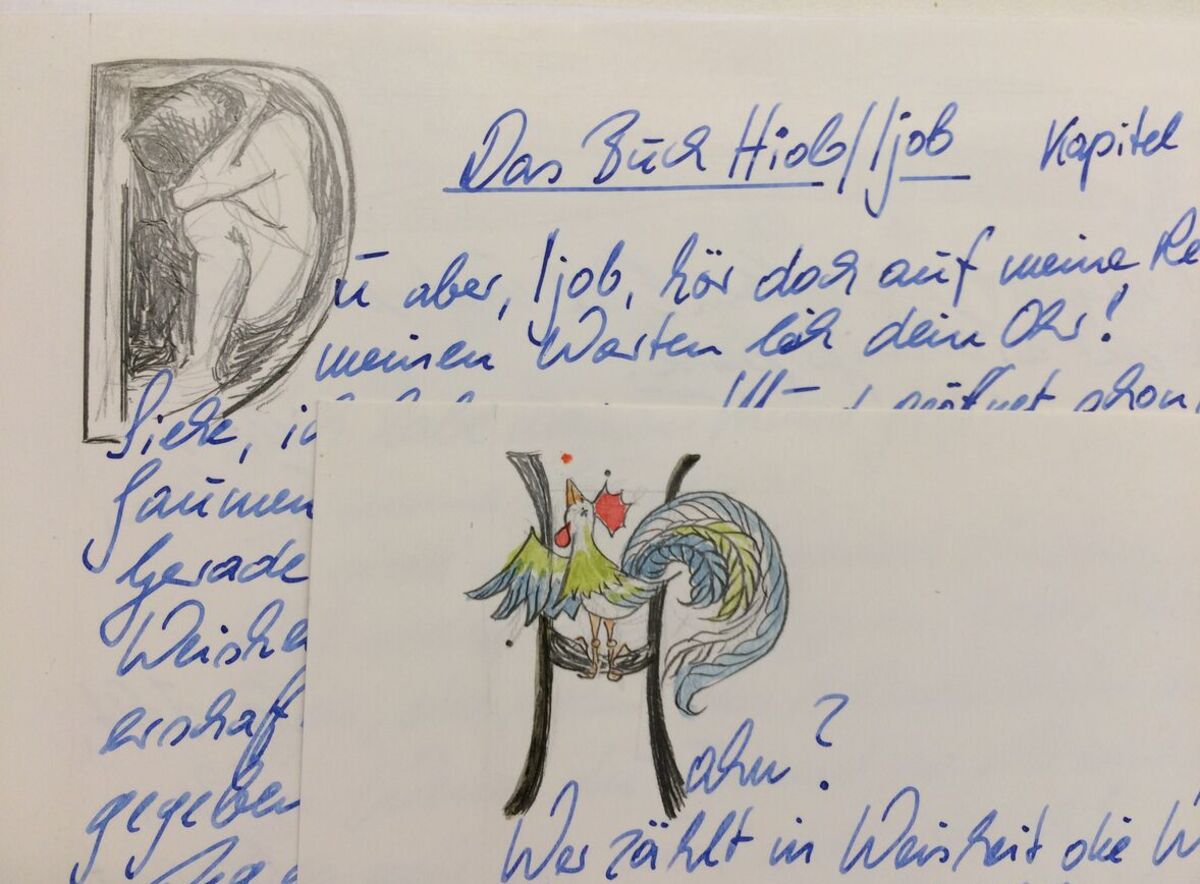 Das Buch Hiob/Ijob Kapitel
Du aber, Ijob, hör doch auf meine Re
meinen Worten leih dein Ohr!
Siehe, schon,
Gaumen
Gerade
Weishe
erschaff
gegeben
Hahn?
Wer zählt in Weisheit die W